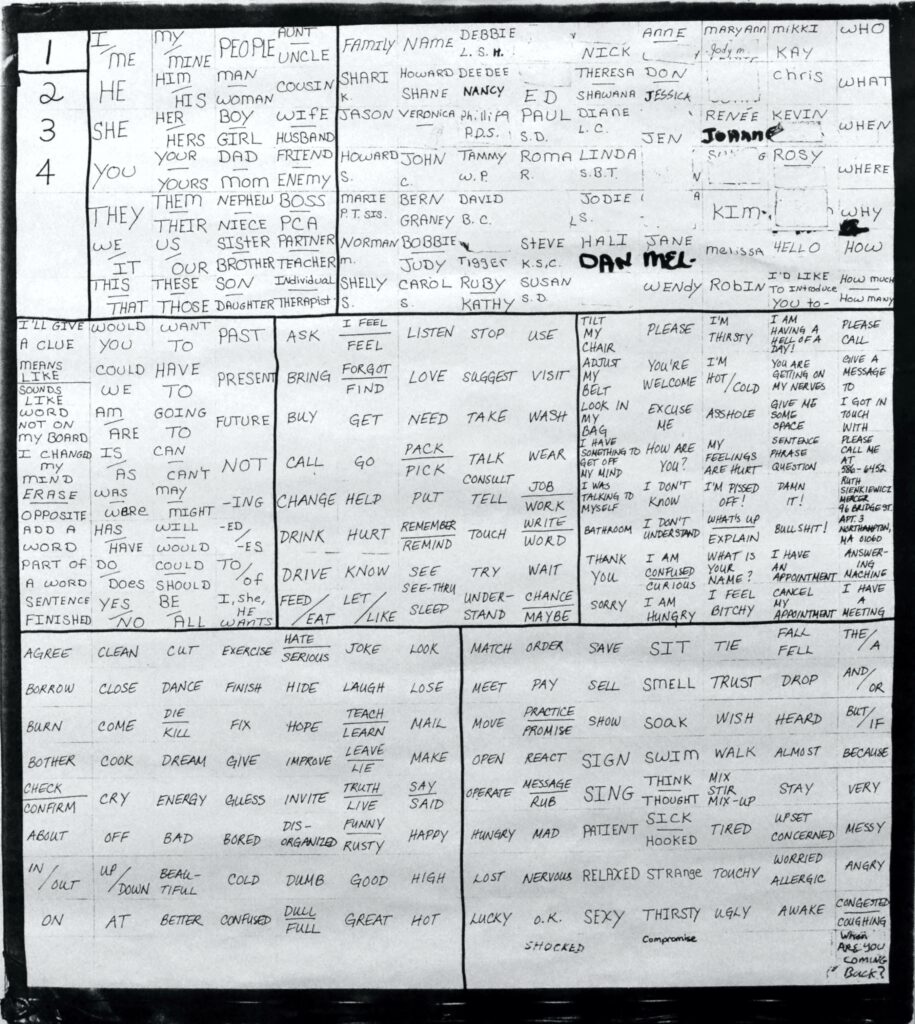 1
2
3
4
I/ME MY/MINE PEOPLE AUNT UNCLE
HE HIM/HIS MAN WOMAN COUSIN
SHE HER/HERS BOY GIRL WIFE HUSBAND
YOU YOUR/YOURS DAD MOM FRIEND ENEMY
THEY THEM/THEIR NEPHEW NIECE BOSS PCA
WE/IT US/OUR SISTER BROTHER PARTNER TEACHER
THIS/THAT THESE/THOSE SON DAUGHTER Individual THERAPIST
FAMILY NAME DEBBIE L.S.H. NICK ANNE MARYANN Jody m. MIKKI KAY WHO
SHARI K. HOWARD SHANE DEE DEE NANCY ED THERESA SHAWANA DON JESSICA Chris WHAT
JASON VERONICA Phillipa P.D.S. PAUL S.D. DIANE L.C. JEN RENÉE JOANNE KEVIN WHEN
HOWARD S. JOHN C. TAMMY W.P. ROMA R. LINDA S.B.T. ROSY WHERE
MARIE P.T. SIS. BERN GRANEY DAVID B.C. JODIE S. KIM WHY
NORMAN m. BOBBIE JUDY Tigger STEVE K.S.C. HALI DAN JANE MEL- melissa HELLO HOW
SHELLY S. CAROL S. RUBY KATHY SUSAN S.D. WENDY ROBIN I'D LIKE TO Introduce YOU to- How much How many
I'LL GIVE A CLUE WOULD YOU WANT TO PAST
MEANS LIKE SOUNDS LIKE COULD WE HAVE TO PRESENT
WORD NOT ON MY BOARD AM ARE GOING TO FUTURE
I CHANGED my MIND IS/AS CAN CAN'T NOT
ERASE OPPOSITE WAS/WERE MAY MIGHT -ING
ADD A WORD HAS/HAVE WILL WOULD -ED/-ES
PART OF A WORD DO/DOES COULD SHOULD TO/OF
SENTENCE FINISHED YES/NO BE ALL I, she, HE WANTS
ASK I FEEL FEEL LISTEN STOP USE
BRING FORGOT FIND LOVE SUGGEST VISIT
BUY GET NEED TAKE WASH
CALL GO PACK PICK TALK CONSULT WEAR
CHANGE HELP PUT TELL JOB WORK
DRINK HURT REMEMBER REMIND TOUCH WRITE WORD
DRIVE KNOW SEE SEE-THRU TRY WAIT
FEED/EAT LET/LIKE SLEEP UNDER-STAND CHANCE MAYBE
TILT MY CHAIR PLEASE I'M THIRSTY I AM HAVING A HELL OF A DAY! PLEASE CALL
ADJUST MY BELT YOU'RE WELCOME I'M HOT/COLD YOU ARE GETTING ON MY NERVES GIVE A MESSAGE TO
LOOK IN MY BAG EXCUSE ME ASSHOLE GIVE ME SOME SPACE I GOT IN TOUCH WITH
I HAVE SOMETHING TO GET OFF MY MIND HOW ARE YOU? MY FEELINGS ARE HURT SENTENCE PHRASE QUESTION PLEASE CALL ME AT 586-6452
I WAS TALKING TO MYSELF I DON'T KNOW I'M PISSED OFF! DAMN IT! RUTH SIENKIEWICZ MERCER 96 BRIDGE ST.
BATHROOM I DON'T UNDERSTAND WHAT'S UP EXPLAIN BULLSHIT! APT. 3 NORTHAMPTON, MA 01060
THANK YOU I AM CONFUSED CURIOUS WHAT IS YOUR NAME? I HAVE AN APPOINTMENT ANSWER-ING MACHINE
SORRY I AM HUNGRY I FEEL BITCHY CANCEL MY APPOINTMENT I HAVE A MEETING
AGREE CLEAN CUT EXERCISE HATE SERIOUS JOKE LOOK
BORROW CLOSE DANCE FINISH HIDE LAUGH LOSE
BURN COME DIE KILL FIX HOPE TEACH LEARN MAIL
BOTHER COOK DREAM GIVE IMPROVE LEAVE LIE MAKE
CHECK CONFIRM CRY ENERGY GUESS INVITE TRUTH LIVE SAY SAID
ABOUT OFF BAD BORED DIS-ORGANIZED FUNNY RUSTY HAPPY
IN/OUT UP/DOWN BEAU-TIFUL COLD DUMB GOOD HIGH
ON AT BETTER CONFUSED DULL FULL GREAT HOT
MATCH ORDER SAVE SIT TIE FALL FELL THE/A
MEET PAY SELL SMELL TRUST DROP AND/OR
MOVE PRACTICE PROMISE SHOW SOAK WISH HEARD BUT/IF
OPEN REACT SIGN SWIM WALK ALMOST BECAUSE
OPERATE MESSAGE RUB SING THINK THOUGHT MIX STIR MIX-UP STAY VERY
HUNGRY MAD PATIENT SICK HOOKED TIRED UPSET CONCERNED MESSY
LOST NERVOUS RELAXED STRANGE TOUCHY WORRIED ALLERGIC ANGRY
LUCKY O.K. SEXY THIRSTY UGLY AWAKE CONGESTED COUGHING
SHOCKED Compromise When ARE YOU COMING Back?